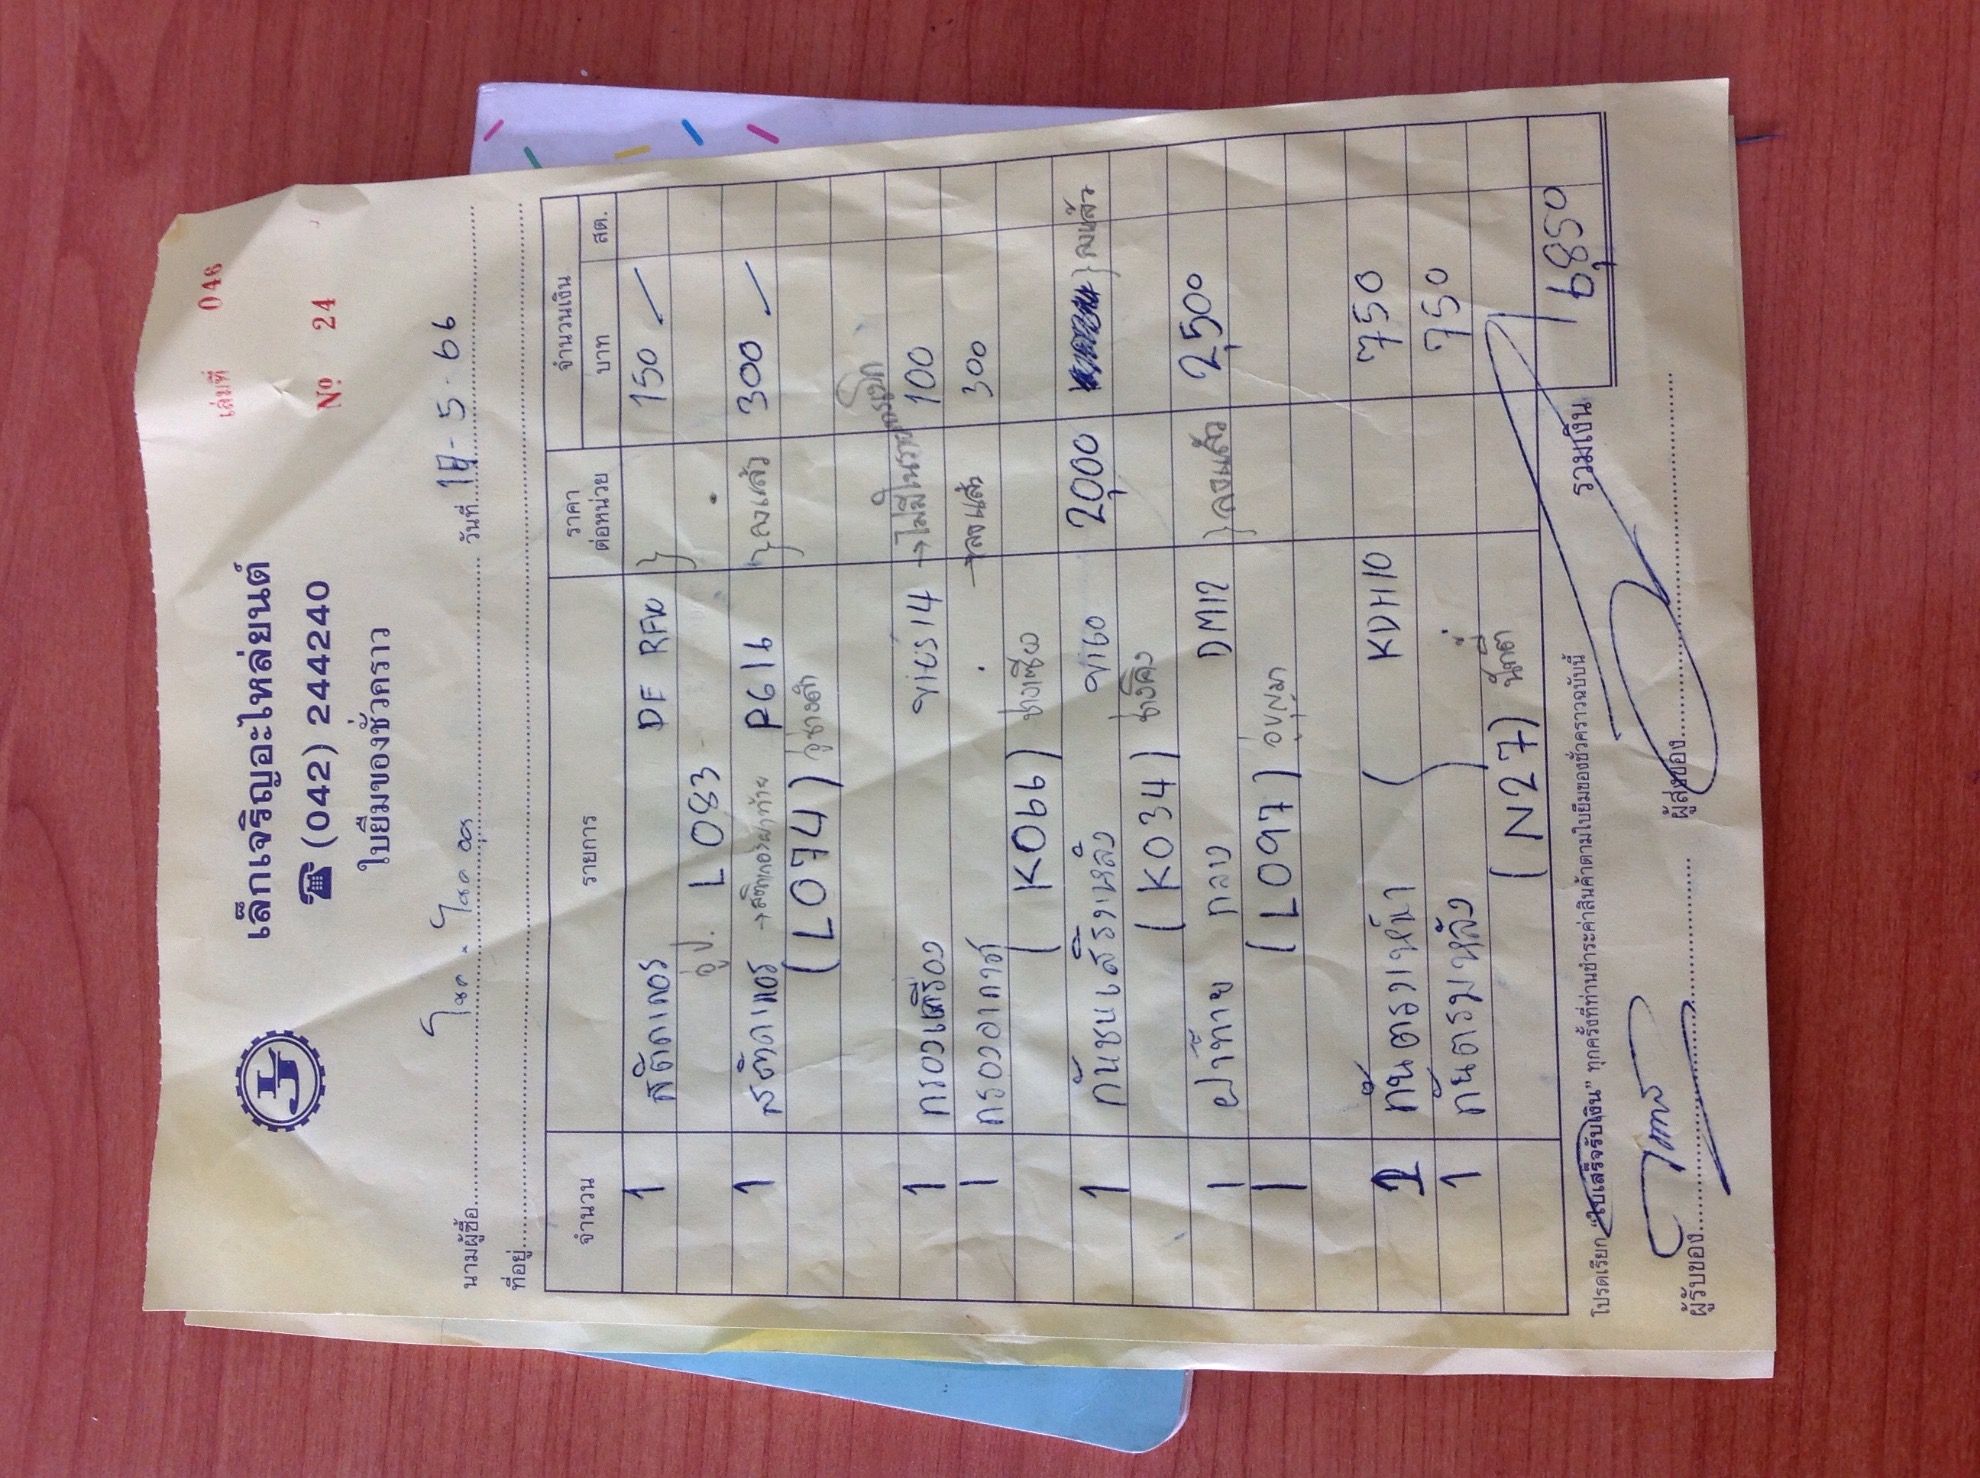 เล่มที่ 046
เล็กเจริญอะไหล่ยนต์
☎ (042) 244240
Nº 24
ใบยืมของชั่วคราว
นามผู้ซื้อ
วันที่ 17-5-66
ที่อยู่
จำนวน รายการ ราคาต่อหน่วย จำนวนเงิน
บาท สต.
1 สติกเกอร์ 150
L083
1 สติกเกอร์ P616 ลงแล้ว 300
(L074) อู่ช่างดำ
1 กรองเครื่อง vios 14 → ไม่มีในรายการเบิก 100
1 กรองอากาศ ลงแล้ว 300
(K066)
1 กันชนเสริมหลัง vigo 2,000 ลงแล้ว
(K034)
1 ฝาท้าย กลาง ลงแล้ว 2,500
1 (L097)
กันตรงหน้า KDH10 750
1 กันตรมหลัง 750
(N27)
รวมเงิน 6,850
โปรดเรียก "ใบเสร็จรับเงิน" ทุกครั้งที่ท่านชำระค่าสินค้าตามใบยืมของชั่วคราวฉบับนี้
ผู้รับของ ผู้ส่งของ